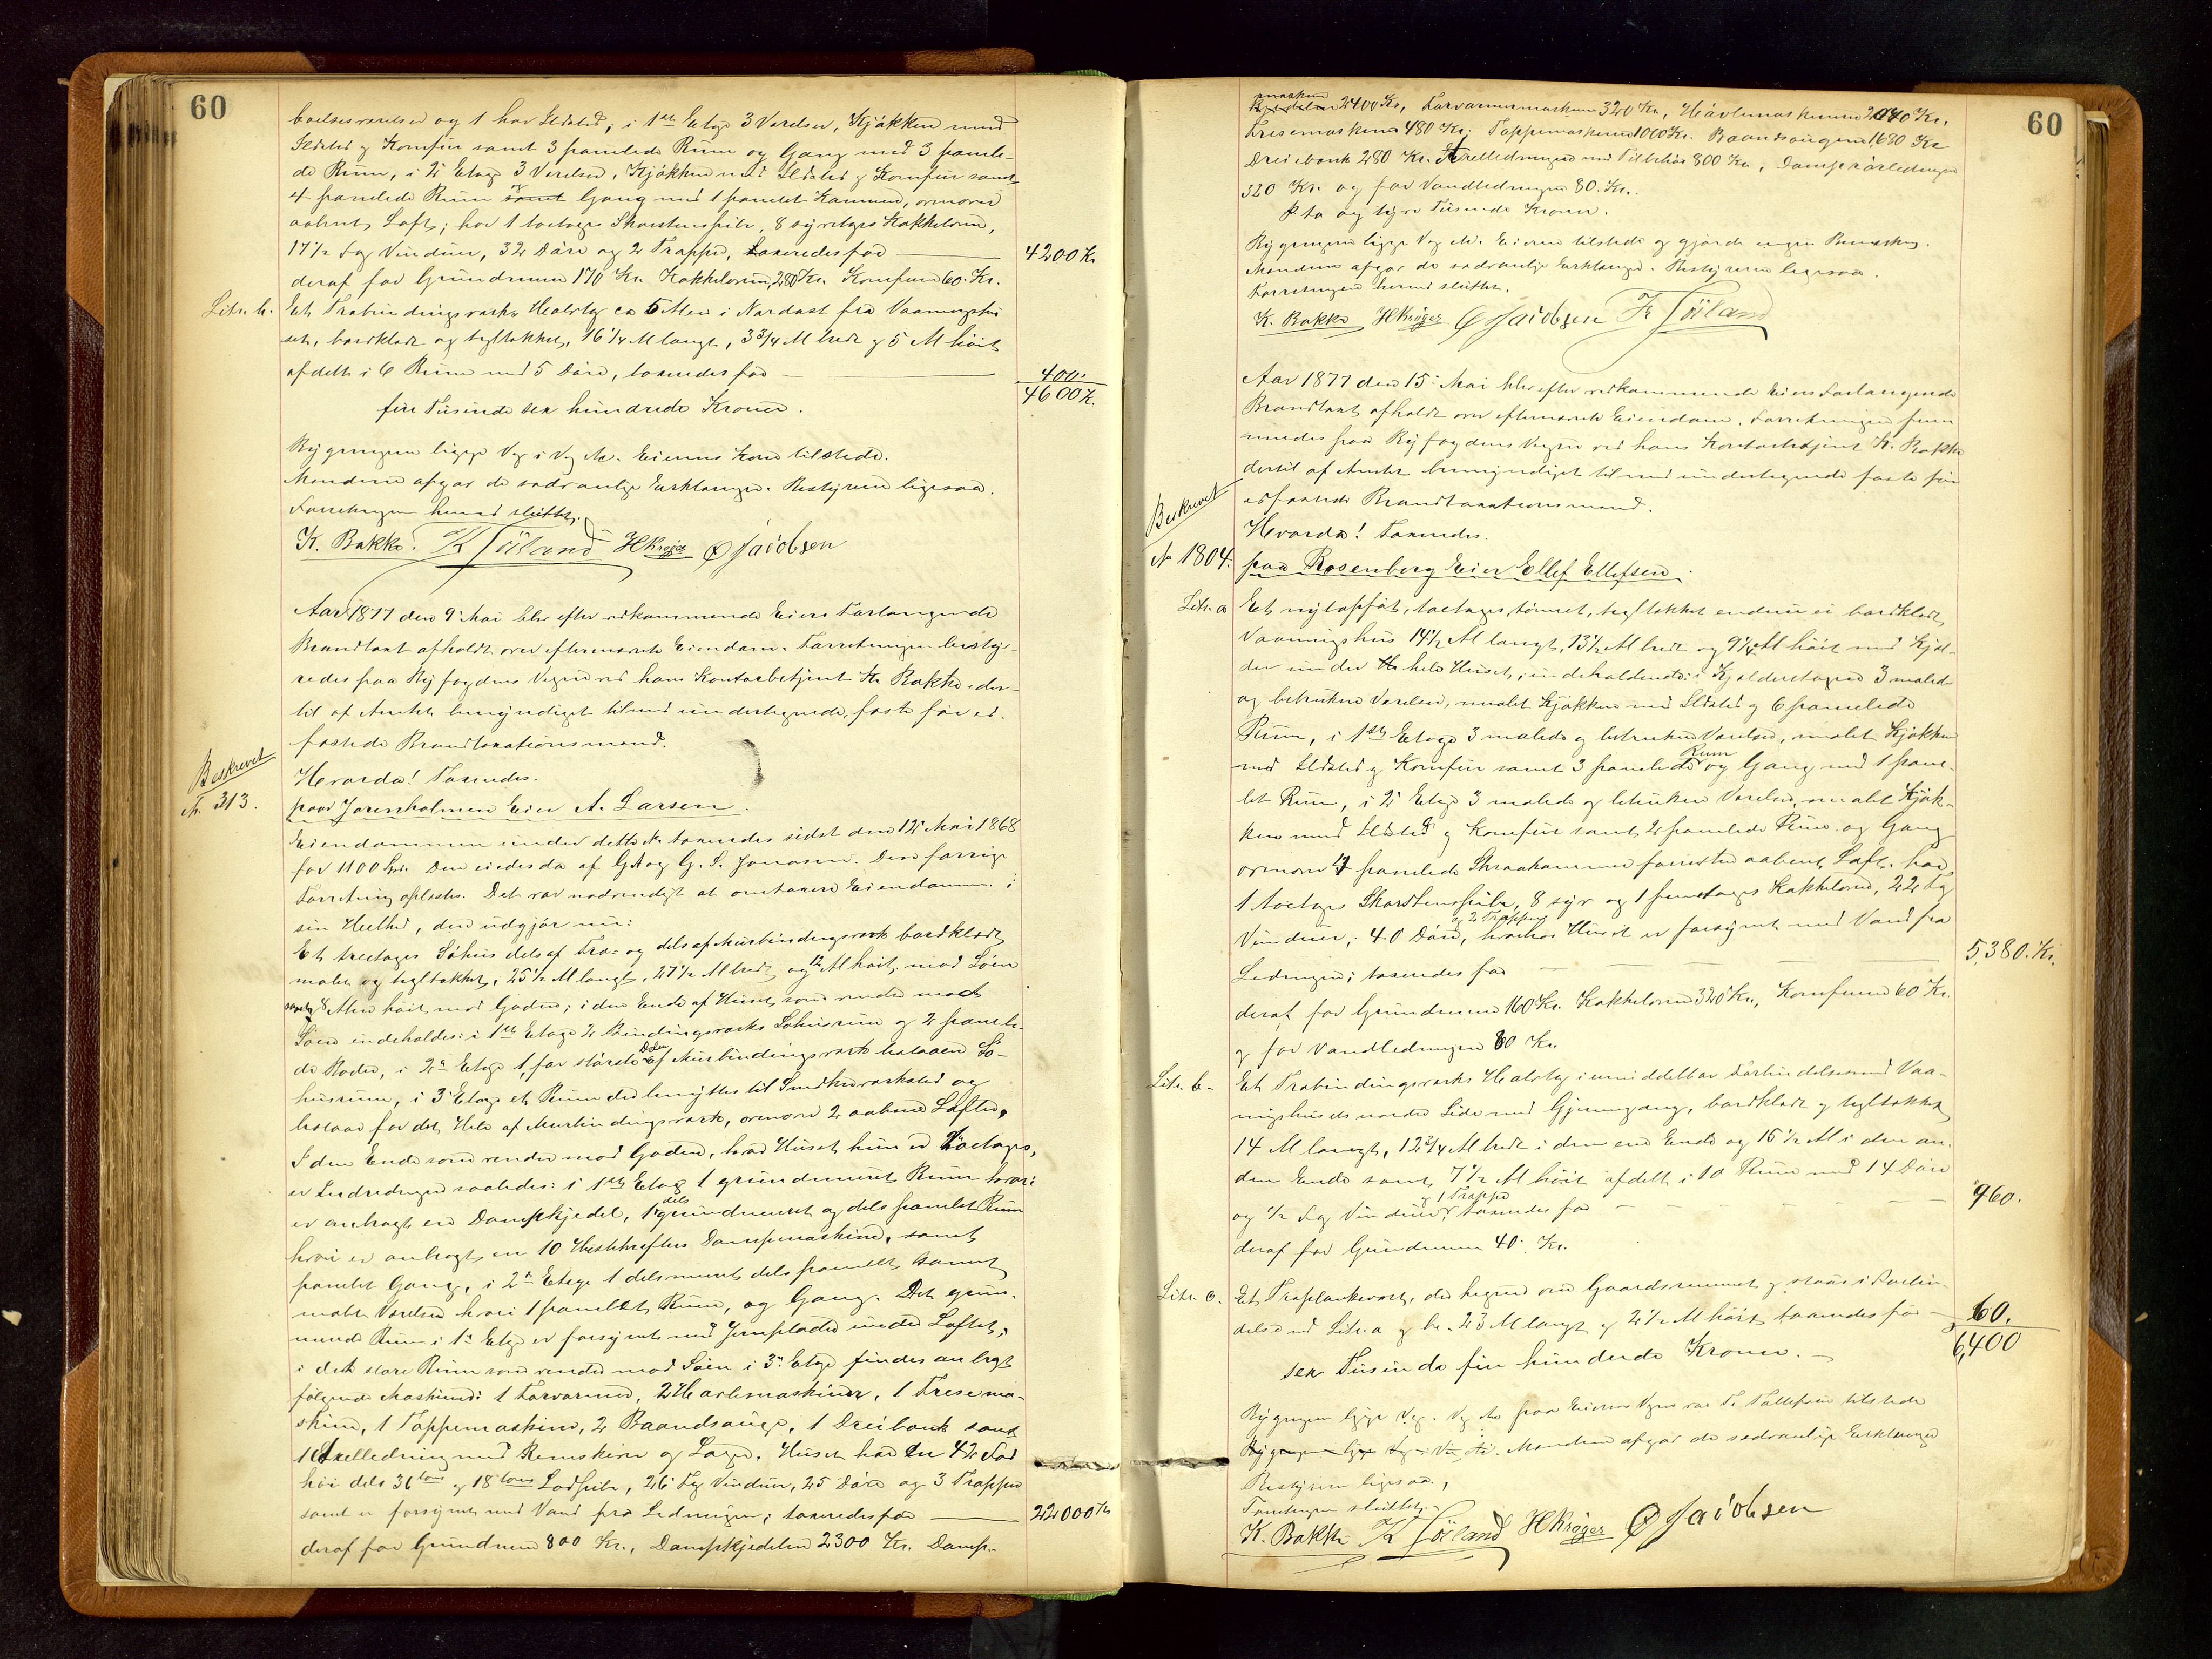 60
boelsesværelser og 1 har Ildsted; i 1ste Etage 3 Værelser, Kjøkken med
Ildsted og Komfur samt 3 panelede Rum og Gang med 3 panele-
de Rum, i 2' Etage 3 Værelser, Kjøkken med Ildsted og Komfur samt
4 panelede Rum og Gang med 1 panelet Kammer, ovenover
aabent Loft; har 1 toetages Skorstenspibe, 8 syretages Kakkelovne,
17½ Fag Vinduer, 32 Döre og 2 Trapper, taxeredes for 4200 Kr
deraf for Grundmuren 170 Kr. Kakkelovnene 280 Kr. Komfuren 60. Kr.
Litr. b. Et Træbindingsværks Halvtag ca 5 Alen i Nordost fra Vaaningshu
set, bordklædt og tegltækket, 16¼ Al langt, 3¾ Al bredt og 5 Al höit
afdelt i 6 Rum med 5 Döre, taxeredes for 400.
4600 K.
fire Tusinde sex hundrede Kroner.
Bygningen ligge Veg i Veg No. Eierens Kone tilstede.
Mændene afgav de sædvanlige Erklæringer. Bestyreren ligesaa.
Forretningen hermed sluttet.
K. Bakke. K Söiland H Krøger O Jacobsen
Aar 1877 den 9' Mai blev efter vedkommende Eiers Forlangende
Brandtaxt afholdt over efternævnte Eiendom. Forretningen besty-
redes paa Byfogdens Vegne ved hans Kontorbetjent K. Bakke, der-
til af Amtet bemyndiget tilmed undertegnede, faste for ed-
fæstede Brandtaxationsmænd.
Hvorda! Taxeredes.
Beskrevet
No. 313. paa Jorenholmen Eier A. Larsen.
Eiendommen under dette No taxeredes sidst den 12' Mai 1868
for 1100 Spd. Den eiedes da af G A og G. S. Jonasen. Den forrige
Forretning oplæstes. Det var nødvendigt at omtaxere Eiendommen i
sin Helhed, den udgjør nu:
Et treetages Söhus dels af Træ- og dels af Murbindingsværk bordklædt
malet og tegltækket, 25½ Al langt, 27½ Al bredt og 12 Al höit, mod Söen
samt 8 Alen höit mod Gaden; i den Ende af Huset som vender mod
Söen indeholdes: i 1ste Etage 2 Bindingsværks Söhusrum og 2 panele-
de Boder, i 2den Etage 1, for störste Delen af Murbindingsværk bestaaende Sö-
husrum, i 3' Etage et Rum der benyttes til Snedkerværksted og
bestaar for det Hele af Murbindingsværk, ovenover 2 aabne Lofter.
I den Ende som vender mod Gaden, hvor Huset kun er toetages,
er Indredningen saaledes: i 1ste Etage 1 grundmuret Rum hvori
er anbragt en Dampkjedel, 1 dels grundmuret og dels panelet Rum
hvori er anbragt en 10 Hestekræfters Dampmaskine, samt
panelet Gang, i 2den Etage 1 dels muret dels panelet samt
malet Værelse hvori 1 panelet Rum, og Gang. Det grund-
murede Rum i 1' Etage er forsynet med Jernplader under Loftet,
i det store Rum som vender mod Söen i 3' Etage findes anbragt
følgende Maskiner: 1 Forvarmer, 2 Høvlemaskiner, 1 Fresema-
skine, 1 Tappemaskine, 2 Baandsauge, 1 Dreibænk samt
1 Axelledning med Remskiver og Lager. Huset har en 42 Fod
höi dels 36 toms og 18 toms Lodpibe, 26 Fag Vinduer, 25 Döre og 3 Trapper
samt er forsynet med Vand fra Ledningen; taxeredes for 22000 Kr
deraf for Grundmuren 800 Kr., Dampkjedelen 2300 Kr. Damp-
60
maskinen 2400 Kr., Forvarmermaskinen 320 Kr., Høvlemaskinerne 2040 Kr.,
Fresemaskinen 480 Kr. Tappemaskinen 1000 Kr. Baandsaugene 1,680 Kr
Dreiebænk 280 Kr. Axelledningen med Tilbehör 800 Kr., Damprörledningen
320 Kr. og for Vandledningen 80. Kr.
to og tyve Tusinde Kroner.
Bygningen ligge Veg No. Eieren tilstede og gjorde ingen Bemærkn.
Mændene afgav de sædvanlige Erklæringer. Bestyreren ligesaa.
Forretningen hermed sluttet.
K. Bakke H Krøger O Jacobsen K Söiland
Aar 1877 den 15' Mai blev efter vedkommende Eiers Forlangende
Brandtaxt afholdt over efternævnte Eiendom. Forretningen frem
medes paa Byfogdens Vegne ved hans Kontorbetjent K. Bakke
dertil af Amtet bemyndiget til med undertegnede faste for
edfæstede Brandtaxationsmænd.
Beskrevet
Hvorda! Taxeredes.
No 1804. paa Rosenberg Eier Ellef Ellefsen.
Litr. a Et nyt opfört, toetages, tömret, tegltækket endnu ei bordklædt
Vaaningshus 14½ Al langt, 13½ Al bredt og 9¼ Al höit med Kjæl-
der under hele Huset; indeholdende: i Kjelderetagen 3 malede
og betrukne Værelser, malet Kjøkken med Ildsted og 6 panelede
Rum, i 1ste Etage 3 malede og betrukne Værelser, malet Kjøkken
med Ildsted og Komfur samt 3 panelede Rum og Gang med 1 pane-
let Rum, i 2' Etage 3 malede og betrukne Værelser, malet Kjøk-
ken med Ildsted og Komfur samt 2 panelede Rum og Gang
ovenover 4 panelede Skraakammer forresten aabent Loft. har
1 toetages Skorstenspibe, 8 syv og 1 femetages Kakkelovne, 22 Fag
Vinduer, 40 Döre, og 2 Trapper, Huset er forsynet med Vand fra
Ledningen; taxeredes for 5,380. Kr.
deraf for Grundmuren 160 Kr. Kakkelovnene 320 Kr., Komfurene 60 Kr.
og for Vandledningen 80 Kr.
Litr. b. Et Træbindingsværks Halvtag i umiddelbar Forbindelse med Vaa-
ningshusets nordre Side med Gjennemgang, bordklædt og tegltækket
14 Al langt, 12¾ Al bredt i den ene Ende og 15½ Al i den an-
den Ende samt 7½ Al höit afdelt i 10 Rum med 14 Döre
og ½ Fag Vinduer og 1 Trappe taxeredes for 960.
deraf for Grundmuren 40. Kr.
Litr. c. Et Træplankeværk, der hegner om Gaardsrummet og staar i Forbin-
delse med Litr. a og b. 23 Al langt og 2½ Al höit taxeredes for 60.
6,400
sex Tusinde fire hundrede Kroner.
Bygningen ligge Veg. Veg No paa Eierens Vegne var T. Tollefsen tilstede
Mændene afgav de sædvanlige Erklæringer
Bestyreren ligesaa,
Forretningen sluttet.
K. Bakke K Söiland H Krøger O Jacobsen